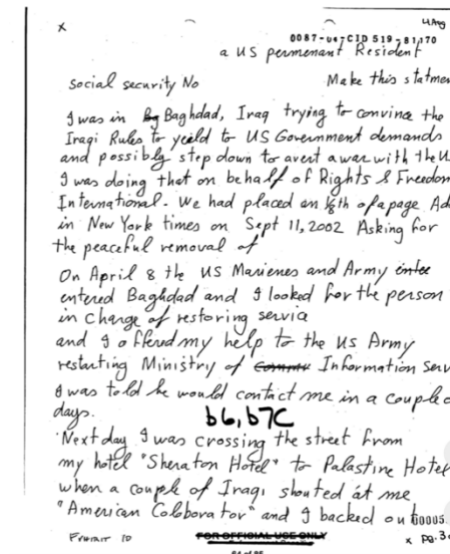 x
4 Aug
0087-04-CID 519-81170
a US permenant Resident
Social security No Make this statmen
I was in Baghdad, Iraq trying to convince the
Iraqi Rules to yeild to US Government demands
and possibly step down to avert a war with the U
I was doing that on behalf of Rights & Freedom
International. We had placed an 1/8th of a page Ad
in New York times on Sept 11, 2002 Asking for
the peaceful removal of
On April 8 the US Marienes and Army
entered Baghdad and I looked for the person
in Charge of restoring service
and I offered my help to the US Army
restarting Ministry of Information Serv
I was told he would contact me in a couple o
days.
b6, b7C
Next day I was crossing the street from
my hotel "Sheraton Hotel" to Palastine Hotel
when a couple of Iraqi shouted at me
"American Coloborator" and I backed out
00005
EXHIBIT 10
FOR OFFICIAL USE ONLY
x pg. 3